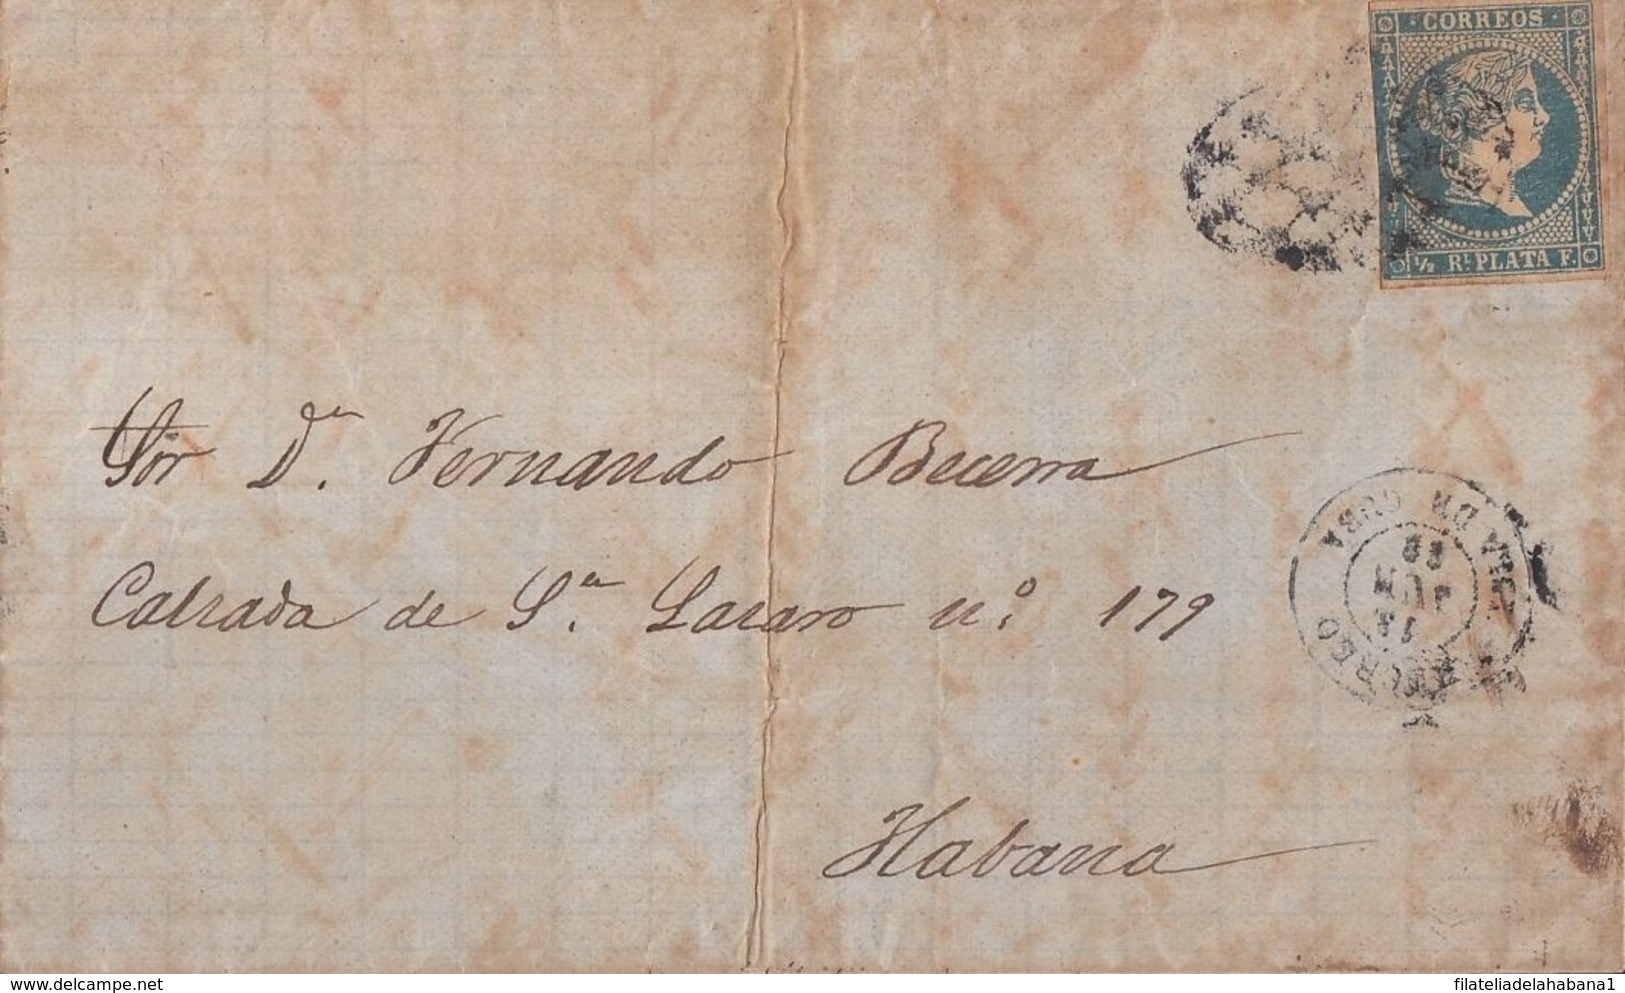 CORREOS
½ Rl. PLATA F.
Sor Dn. Fernando Becerra
Calzada de Sn. Lazaro no. 179
Habana
DE CUBA
CORREO
JUN
www.delcampe.net
filateliadelahabana1